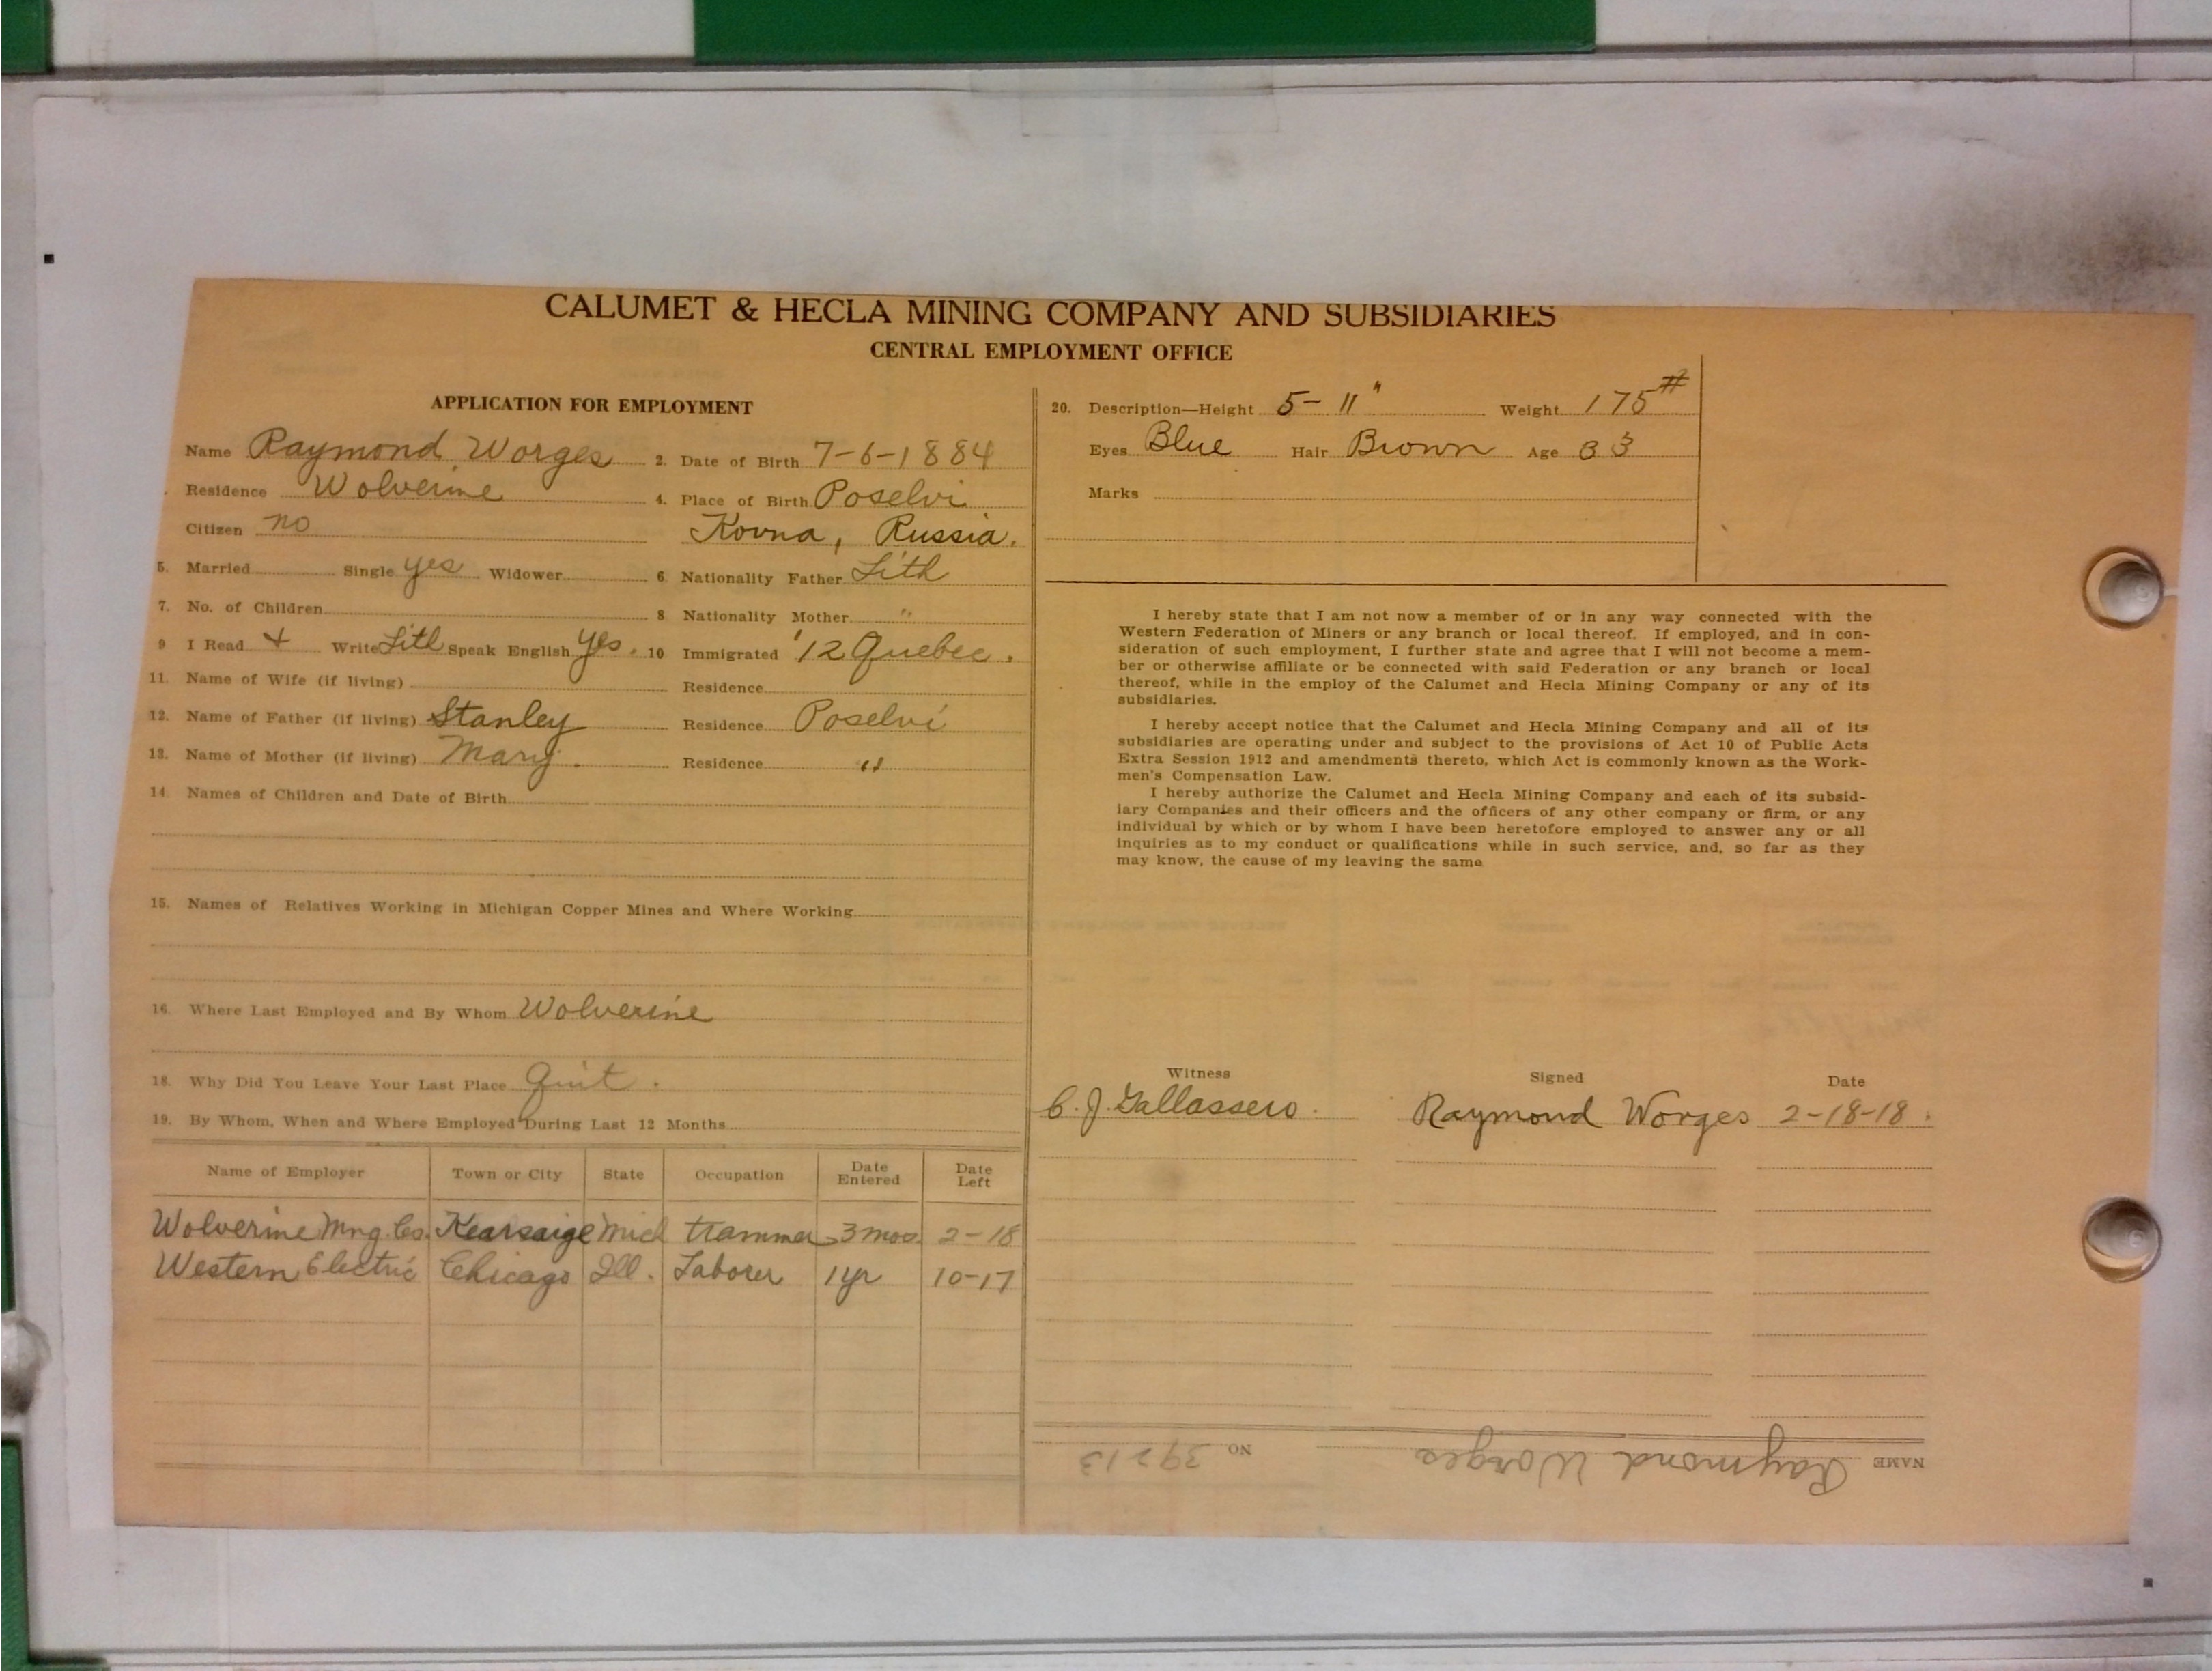 CALUMET & HECLA MINING COMPANY AND SUBSIDIARIES
CENTRAL EMPLOYMENT OFFICE
APPLICATION FOR EMPLOYMENT
Name Raymond Worges 2. Date of Birth 7-6-1884
Residence Wolverine 4. Place of Birth Poselvi
Citizen no Kovna, Russia.
5. Married Single yes Widower 6. Nationality Father Lith
7. No. of Children 8 Nationality Mother "
9 I Read + Write Lith Speak English yes. 10 Immigrated '12 Quebec.
11. Name of Wife (if living) Residence
12. Name of Father (if living) Stanley Residence Poselvi
13. Name of Mother (if living) Mary. Residence "
14. Names of Children and Date of Birth
15. Names of Relatives Working in Michigan Copper Mines and Where Working
16. Where Last Employed and By Whom Wolverine
18. Why Did You Leave Your Last Place Quit.
19. By Whom, When and Where Employed During Last 12 Months
Name of Employer Town or City State Occupation Date Entered Date Left
Wolverine Mng. Co. Kearsaige Mich trammer 3 mos. 2-18
Western Electric Chicago Ill. Laborer 1yr 10-17
20. Description—Height 5-11" Weight 175#
Eyes Blue Hair Brown Age 33
Marks
I hereby state that I am not now a member of or in any way connected with the
Western Federation of Miners or any branch or local thereof. If employed, and in con-
sideration of such employment, I further state and agree that I will not become a mem-
ber or otherwise affiliate or be connected with said Federation or any branch or local
thereof, while in the employ of the Calumet and Hecla Mining Company or any of its
subsidiaries.
I hereby accept notice that the Calumet and Hecla Mining Company and all of its
subsidiaries are operating under and subject to the provisions of Act 10 of Public Acts
Extra Session 1912 and amendments thereto, which Act is commonly known as the Work-
men's Compensation Law.
I hereby authorize the Calumet and Hecla Mining Company and each of its subsid-
iary Companies and their officers and the officers of any other company or firm, or any
individual by which or by whom I have been heretofore employed to answer any or all
inquiries as to my conduct or qualifications while in such service, and, so far as they
may know, the cause of my leaving the same
Witness Signed Date
C. J. Gallassero. Raymond Worges 2-18-18.
NAME Raymond Worges NO 39213